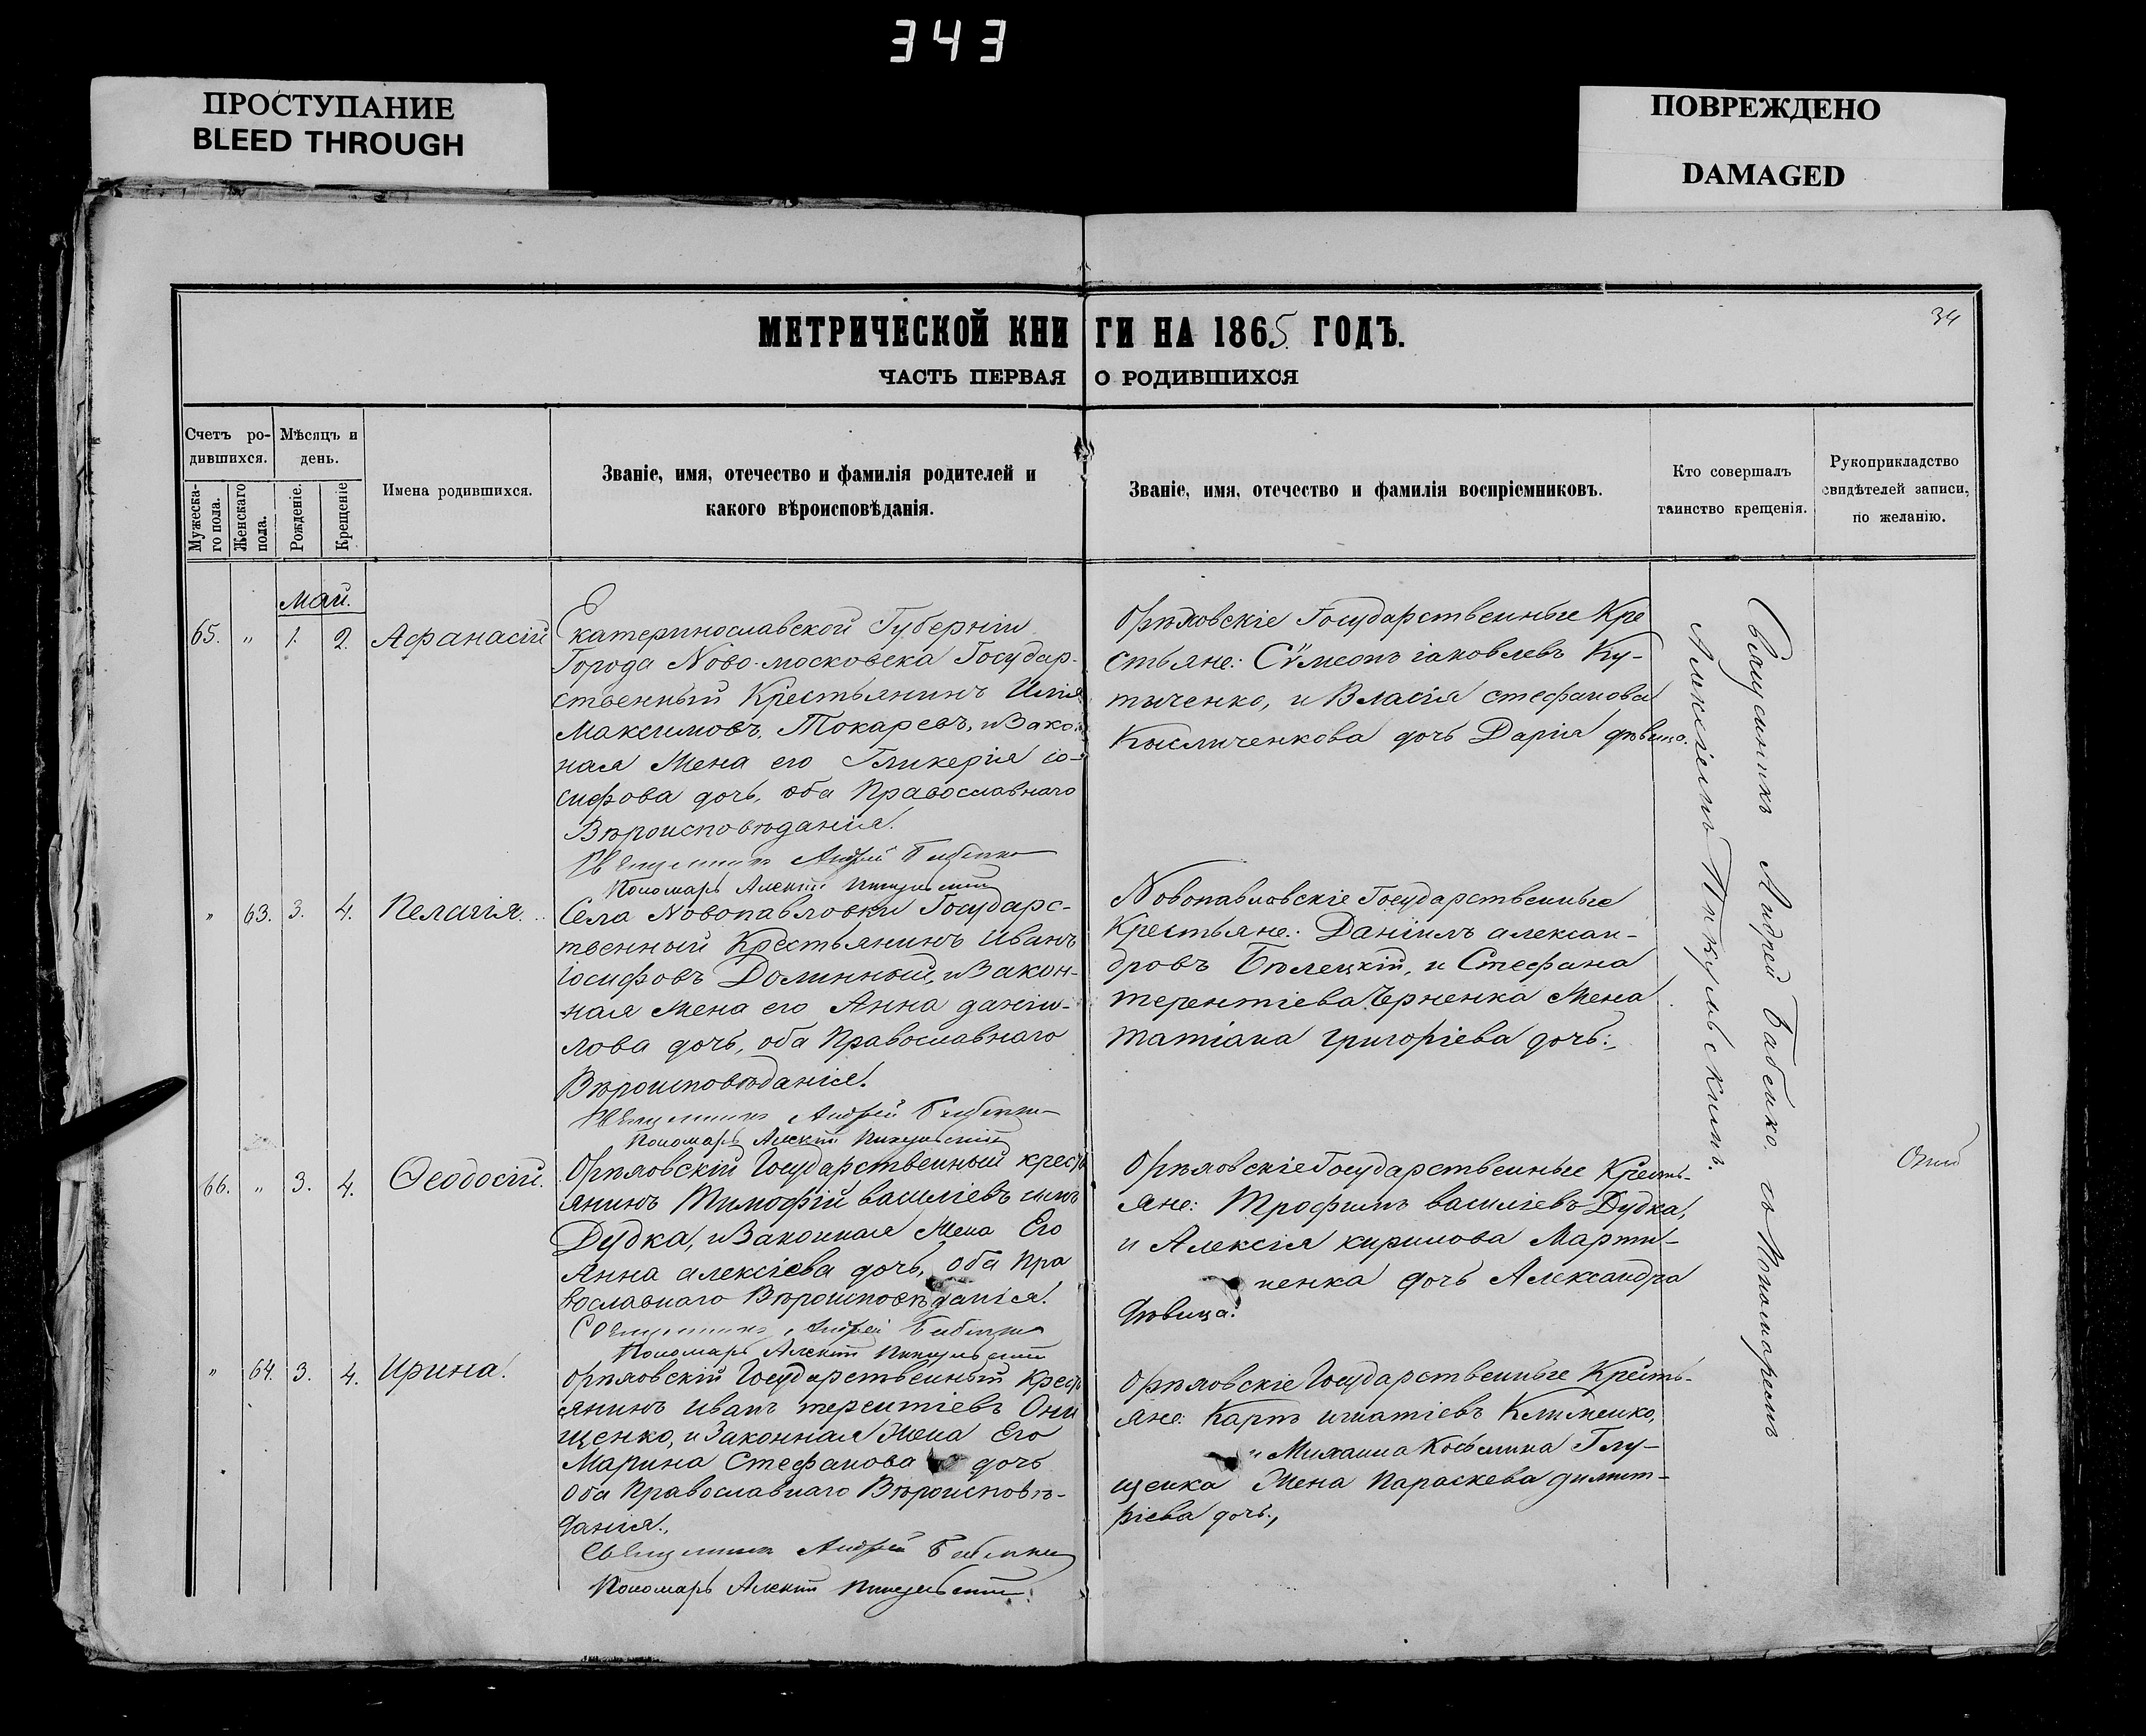 343
ПРОСТУПАНИЕ
BLEED THROUGH
ПОВРЕЖДЕНО
DAMAGED
34
МЕТРИЧЕСКОЙ КНИГИ НА 1865 ГОДЪ.
ЧАСТЬ ПЕРВАЯ О РОДИВШИХСЯ
Счетъ ро-
дившихся.
Мужеска-
го пола.
Женскаго
пола.
Мѣсяцъ и
день.
Рожденіе.
Крещеніе
Имена родившихся.
Званіе, имя, отечество и фамилія родителей и
какого вѣроисповѣданія.
Званіе, имя, отечество и фамилія воспріемниковъ.
Кто совершалъ
таинство крещенія.
Рукоприкладство
свидѣтелей записи,
по желанію.
Май.
65. " 1. 2. Афанасій
Екатеринославской Губерніи
Города Ново-московска Государ-
ственный Крестьянинъ Илія
Максимовъ Токаревъ, и Закон
ная Жена его Гликерія Іо-
сифова дочь, оба Православнаго
Вѣроисповѣданія.
Священникъ Андрей Бабенко
Пономарь Алексѣй Пикульскій
Орѣховскіе Государственные Кре
стьяне: Сѵмеонъ іаковлевъ Ку-
тыченко, и Власія стефанова
Кысличенкова дочь Дарія дѣвица.
" 63. 3. 4. Пелагія.
Села Новопавловки Государс-
твенный Крестьянинъ Иванъ
Іосифовъ Долинный, и Закон-
ная Жена его Анна даніи-
лова дочь, оба Православнаго
Вѣроисповѣданія.
Священникъ Андрей Бабенко
Пономарь Алексѣй Пикульскій
Новопавловскіе Государственные
Крестьяне: Даніилъ алексан-
дровъ Бѣлецкій, и Стефана
терентіева Черненка Жена
татіана григоріева дочь.
66. " 3. 4. Ѳеодосій.
Орѣховскій Государственный крест
янинъ Тимофій василіевъ сынъ
Дудка, и Законная Жена Его
Анна алексіева дочь, оба Пра
вославнаго Вѣроисповѣданія.
Священникъ Андрей Бабенко
Пономарь Алексѣй Пикульскій
Орѣховскіе Государственные Кресть-
яне: Трофимъ василіевъ Дудка,
и Алексія кирилова Марти-
ненка дочь Александра
дѣвица.
" 64. 3. 4. Ирина.
Орѣховскій Государственный Крест
янинъ Иванъ терентіевъ Они
щенко, и Законная Жена Его
Марина Стефанова дочь
оба Православнаго Вѣроисповѣ-
данія.
Священникъ Андрей Бабенко
Пономарь Алексѣй Пикульскій
Орѣховскіе Государственные Кресть-
яне: Карпъ игнатіевъ Клименко,
и Михаила Косьмина Глу-
щенка Жена Параскева димит-
ріева дочь,
Священникъ Андрей Бабенко съ Пономаремъ
Алексіемъ Пикульскимъ.